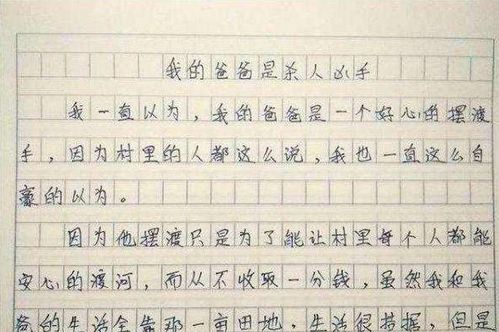 我的爸爸是杀人凶手
我一直以为,我的爸爸是一个好心的摆渡
手,因为村里的人都这么说,我也一直这么自
豪的以为。
因为他摆渡只是为了能让村里每个人都能
安心的渡河,而从不收取一分钱,虽然我和我
爸的生活全靠那一亩田地,生活很拮据,但是